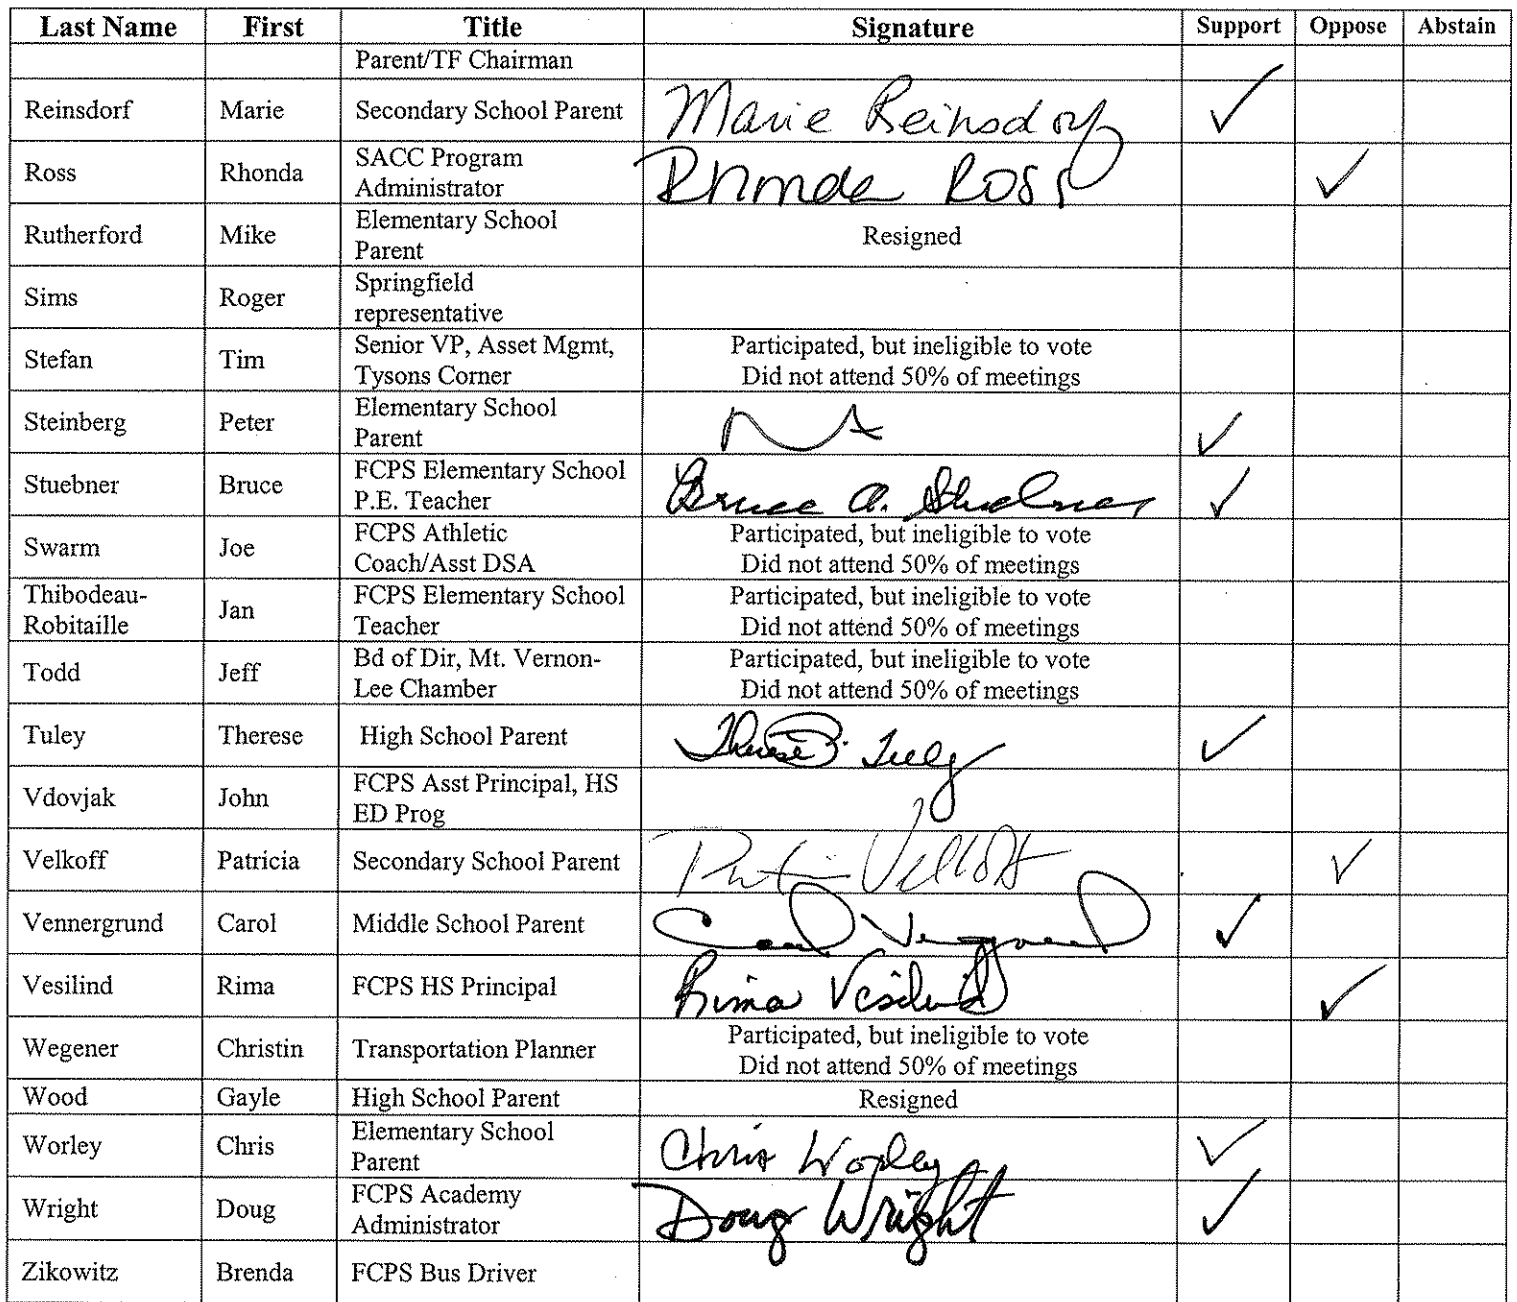 Last Name First Title Signature Support Oppose Abstain
Parent/TF Chairman
Reinsdorf Marie Secondary School Parent Marie Reinsdorf ✓
Ross Rhonda SACC Program
Administrator Rhonda Ross ✓
Rutherford Mike Elementary School
Parent Resigned
Sims Roger Springfield
representative
Stefan Tim Senior VP, Asset Mgmt,
Tysons Corner Participated, but ineligible to vote
Did not attend 50% of meetings
Steinberg Peter Elementary School
Parent ✓
Stuebner Bruce FCPS Elementary School
P.E. Teacher Bruce A. Stuebner ✓
Swarm Joe FCPS Athletic
Coach/Asst DSA Participated, but ineligible to vote
Did not attend 50% of meetings
Thibodeau-
Robitaille Jan FCPS Elementary School
Teacher Participated, but ineligible to vote
Did not attend 50% of meetings
Todd Jeff Bd of Dir, Mt. Vernon-
Lee Chamber Participated, but ineligible to vote
Did not attend 50% of meetings
Tuley Therese High School Parent Therese B. Tuley ✓
Vdovjak John FCPS Asst Principal, HS
ED Prog
Velkoff Patricia Secondary School Parent Patricia Velkoff ✓
Vennergrund Carol Middle School Parent Carol Vennergrund ✓
Vesilind Rima FCPS HS Principal Rima Vesilind ✓
Wegener Christin Transportation Planner Participated, but ineligible to vote
Did not attend 50% of meetings
Wood Gayle High School Parent Resigned
Worley Chris Elementary School
Parent Chris Worley ✓
Wright Doug FCPS Academy
Administrator Doug Wright ✓
Zikowitz Brenda FCPS Bus Driver